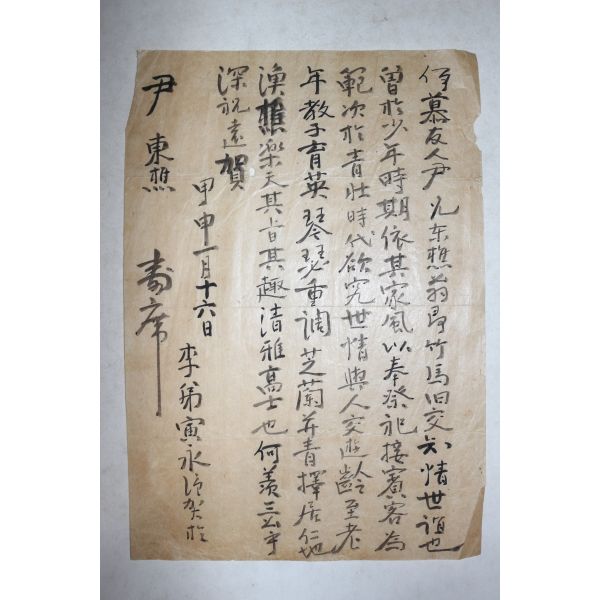 伊慕友人尹兄东樵翁爲竹馬旧交知情世誼也
曾於少年時期依其家風以奉祭祀接賓客為
範次於青壮時代欲究世情與人交遊齡至老
年教子育英琴瑟重調芝蘭并青擇居仁地
漁樵楽天其旨其趣清雅高士也何羨三公乎
深祝遠賀
甲申一月十六日
李弟寅永謹賀於
尹東樵 壽席